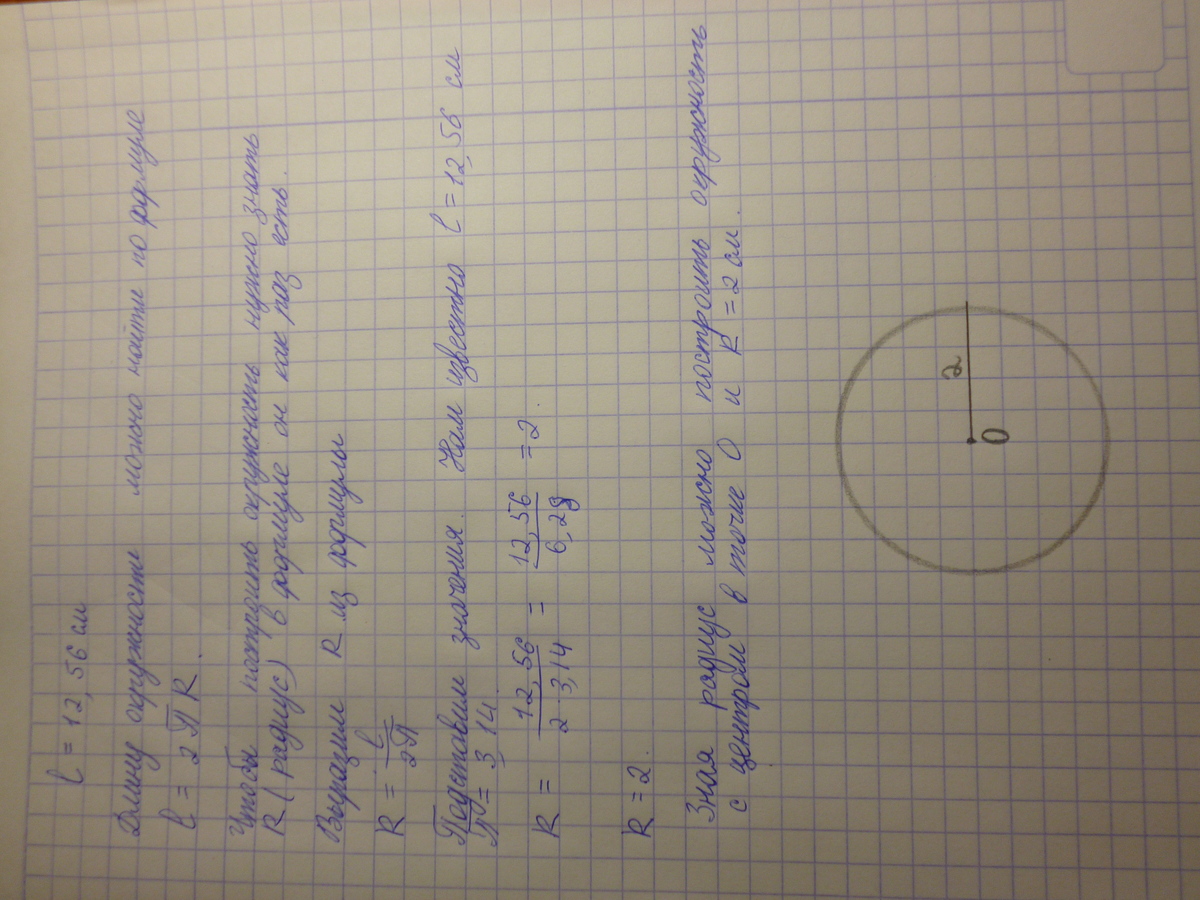 l = 12,56 см
Длину окружности можно найти по формуле
l = 2πR.
Чтобы построить окружность нужно знать
R (радиус) в формуле он как раз есть.
Выразим R из формулы
R = l/2π
Подставим значения. Нам известна l = 12,56 см
π = 3,14.
R = 12,56/2·3,14 = 12,56/6,28 = 2.
R = 2.
Зная радиус можно построить окружность
с центром в точке О и R = 2 см.
2
О